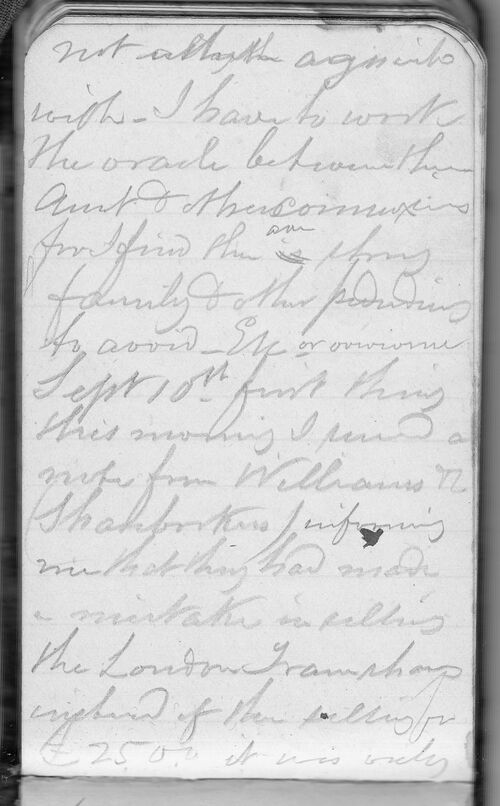 not altogether
with - I have to work
the oracle between the
Aunt & other connexions
for I find there are strong
family & other
to avoid - Etc or overcome
Sept 10th first thing
this morning I received a
note from Williams &
(Sharbrokers) informing
me that they had made
a mistake in selling
the London Tram shares
instead of their selling for
£ 25.0.0 it was only